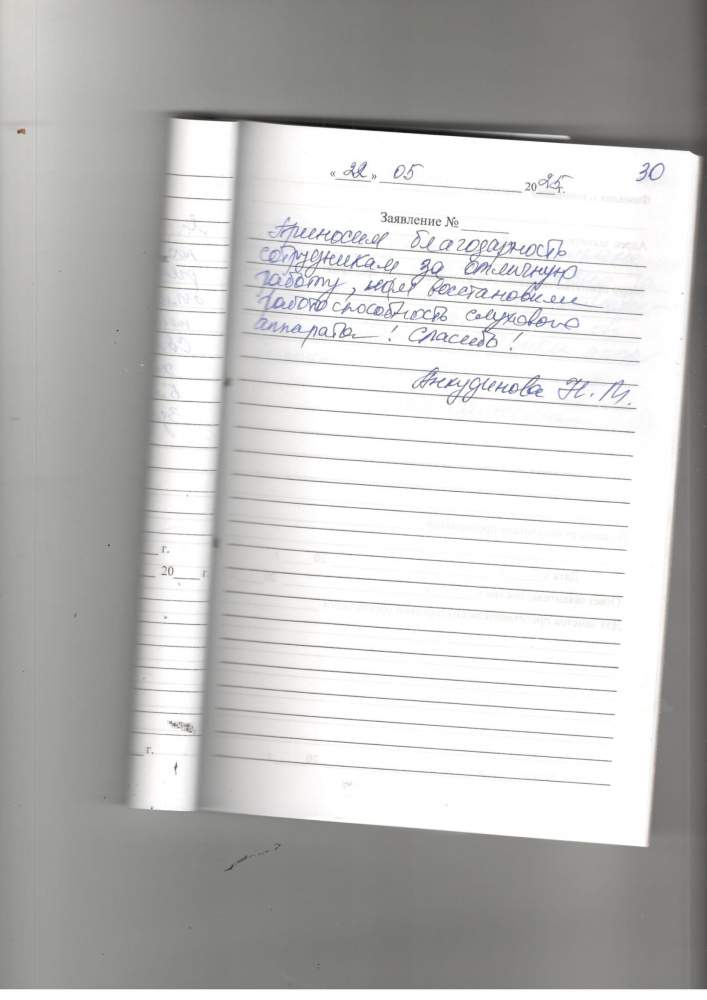 30
« 22 » 05 2025г.
Заявление №
Приносим благодарность
сотрудникам за отличную
работу, нам восстановили
работоспособность слухового
аппарата! Спасибо!
Анкудинова Н. М.
г.
20 г
г.